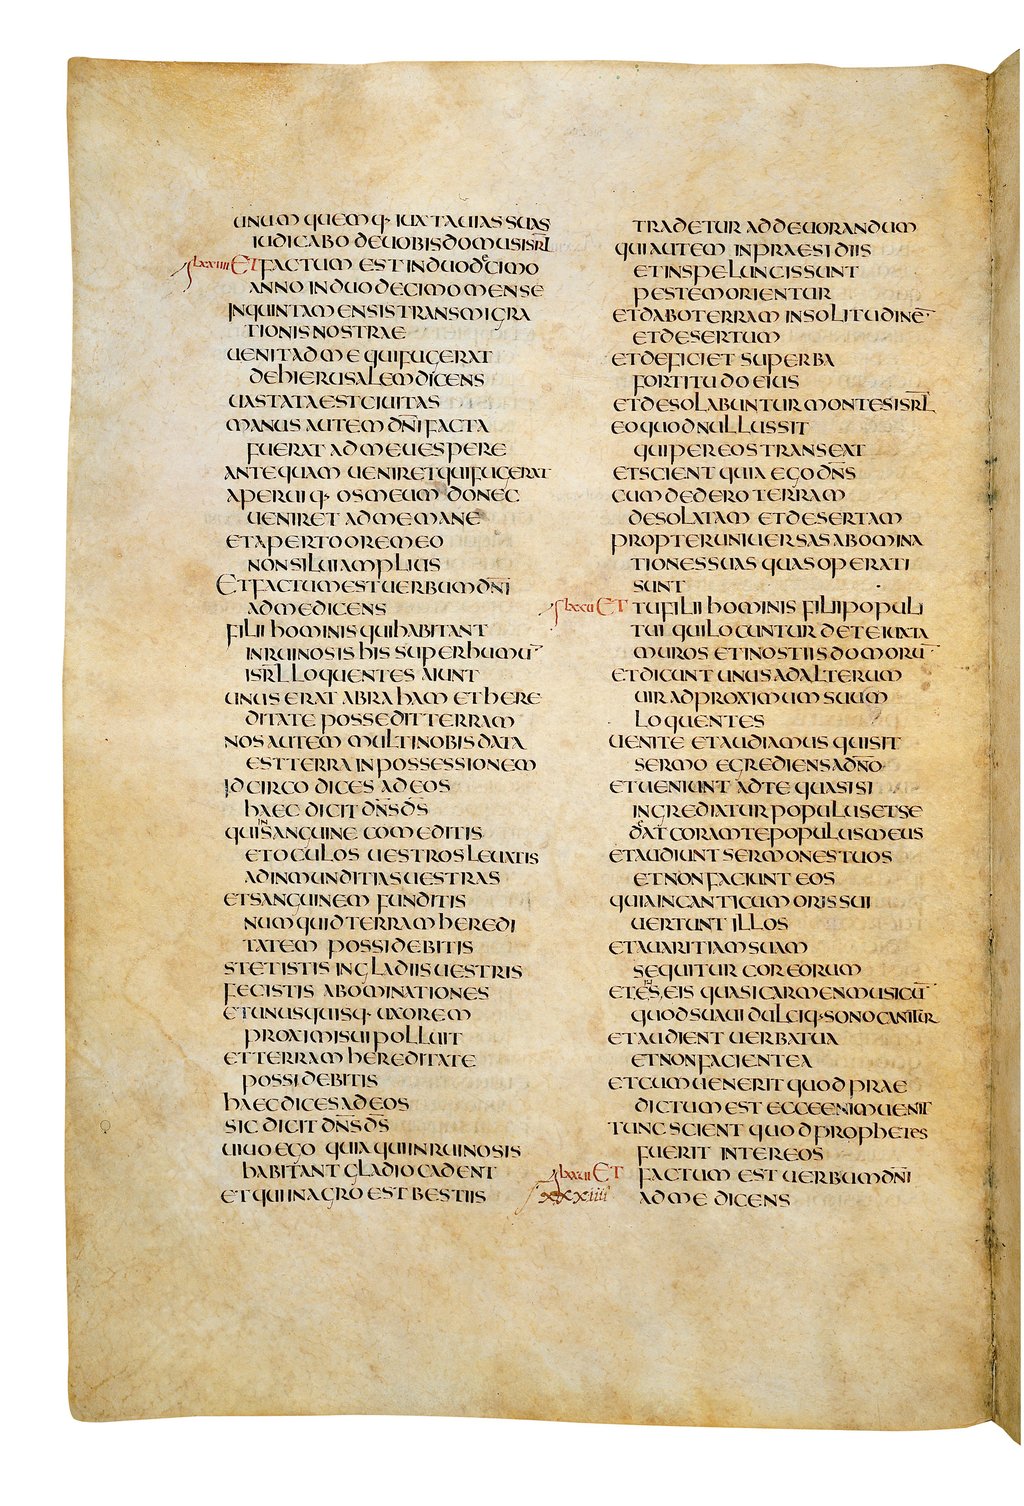 UNUM QUEMQ· IUXTA UIAS SUAS
IUDICABO DE UOBIS DOMUS ISRL̅
lxxiiii ET FACTUM EST IN DUODECIMO
ANNO IN DUODECIMO MENSE
IN QUINTA MENSIS TRANSMIGRA
TIONIS NOSTRAE
UENIT AD ME QUI FUGERAT
DE HIERUSALEM DICENS
UASTATA EST CIUITAS
MANUS AUTEM DN̅I FACTA
FUERAT AD ME UESPERE
ANTEQUAM UENIRET QUI FUGERAT
APERUIQ· OS MEUM DONEC
UENIRET AD ME MANE
ET APERTO ORE MEO
NON SILUI AMPLIUS
ET FACTUM EST UERBUM DN̅I
AD ME DICENS
FILII HOMINIS QUI HABITANT
IN RUINOSIS HIS SUPER HUMU̅
ISRL̅ LOQUENTES AIUNT
UNUS ERAT ABRAHAM ET HERE
DITATE POSSEDIT TERRAM
NOS AUTEM MULTI NOBIS DATA
EST TERRA IN POSSESSIONEM
IDCIRCO DICES AD EOS
HAEC DICIT DN̅S D̅S
QUI IN SANGUINE COMEDITIS
ET OCULOS UESTROS LEUATIS
AD INMUNDITIAS UESTRAS
ET SANGUINEM FUNDITIS
NUMQUID TERRAM HEREDI
TATEM POSSIDEBITIS
STETISTIS IN GLADIIS UESTRIS
FECISTIS ABOMINATIONES
ET UNUSQUISQ· UXOREM
PROXIMI SUI POLLUIT
ET TERRAM HEREDITATE
POSSIDEBITIS
HAEC DICES AD EOS
SIC DICIT DN̅S D̅S
UIUO EGO QUIA QUI IN RUINOSIS
HABITANT GLADIO CADENT
ET QUI IN AGRO EST BESTIIS
TRADETUR AD DEUORANDUM
QUI AUTEM IN PRAESIDIIS
ET IN SPELUNCIS SUNT
PESTE MORIENTUR
ET DABO TERRAM IN SOLITUDINE̅
ET DESERTUM
ET DEFICIET SUPERBA
FORTITUDO EIUS
ET DESOLABUNTUR MONTES ISRL̅
EO QUOD NULLUS SIT
QUI PER EOS TRANSEAT
ET SCIENT QUIA EGO DN̅S
CUM DEDERO TERRAM
DESOLATAM ET DESERTAM
PROPTER UNIUERSAS ABOMINA
TIONES SUAS QUAS OPERATI
SUNT
lxxu ET TU FILII HOMINIS FILII POPULI
TUI QUI LOCUNTUR DE TE IUXTA
MUROS ET IN OSTIIS DOMORU̅
ET DICUNT UNUS AD ALTERUM
UIR AD PROXIMUM SUUM
LOQUENTES
UENITE ET AUDIAMUS QUI SIT
SERMO EGREDIENS A DN̅O
ET UENIUNT AD TE QUASI SI
INGREDIATUR POPULUS ET SE
DEAT CORAM TE POPULUS MEUS
ET AUDIUNT SERMONES TUOS
ET NON FACIUNT EOS
QUIA IN CANTICUM ORIS SUI
UERTUNT ILLOS
ET AUARITIAM SUAM
SEQUITUR COR EORUM
ET ES EIS QUASI CARMEN MUSICU̅
QUOD SUAUI DULCIQ· SONO CANITUR
ET AUDIENT UERBA TUA
ET NON FACIENT EA
ET CUM UENERIT QUOD PRAE
DICTUM EST ECCE ENIM UENIT
TUNC SCIENT QUOD PROPHETES
FUERIT INTER EOS
lxxui ET FACTUM EST UERBUM DN̅I
xxxiiii AD ME DICENS